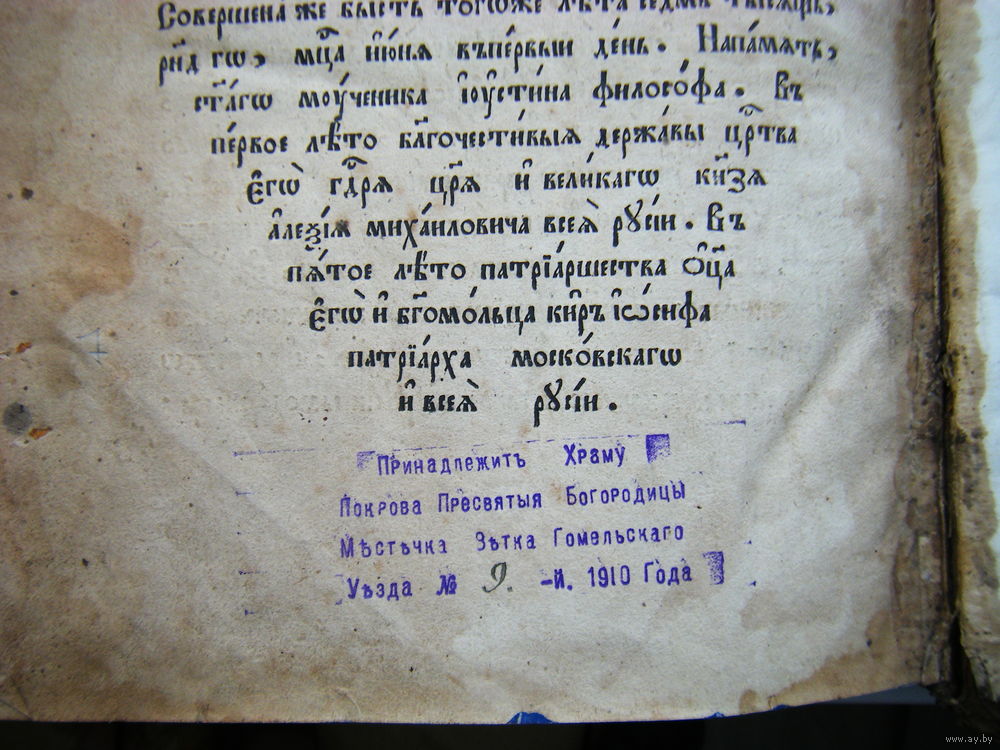 Совершена́ же бы́сть тогѡ́же лѣ́та седмь ты́сѧщь,
рн҃д гѡ, мц҃а і҆ю́нѧ въпе́рвыи де́нь. Напа́мѧть,
ст҃а́гѡ моу́ченика і҆оусті́на філосо́фа. Въ
пе́рвое лѣ́то бл҃гочести́выѧ держа́вы цр҃тва
є҆гѡ̀ гд҃рѧ цр҃ѧ и҆ вели́кагѡ кн҃зѧ
а҆леѯі́ѧ миха́иловича всеѧ̀ рꙋсі́и. Въ
пѧ́тое лѣ́то патрїа́ршества ѻ҆ц҃а
є҆гѡ̀ и҆ бг҃омо́льца ки́ръ і҆ѡ́сифа
патрїа́рха моско́вскагѡ
и҆ всеѧ̀ рꙋсі́и.
Принадлежитъ Храму
Покрова Пресвятыя Богородицы
Мѣстѣчка Вѣтка Гомельскаго
Уѣзда № 9. -й. 1910 Года
www.ay.by